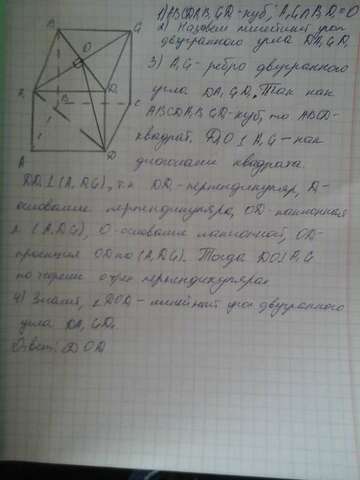 1) ABCDA₁B₁C₁D₁-куб, A₁C₁∩B₁D₁=O
2) Назовем линейный угол
двугранного угла DA₁C₁D₁
3) A₁C₁-ребро двугранного
угла DA₁C₁D₁. Так как
ABCDA₁B₁C₁D₁-куб, то ABCD-
квадрат. D₁O⊥A₁C₁-как
диагонали квадрата.
DD₁⊥(A₁D₁C₁), т.к. DD₁-перпендикуляр, D₁-
основание перпендикуляра, OD-наклонная
к (A₁D₁C₁), O-основание наклонной, OD₁-
проекция OD на (A₁D₁C₁). Тогда DO⊥A₁C₁
по теореме о трех перпендикулярах
4) Значит, ∠DOD₁-линейный угол двугранного
угла DA₁C₁D₁
Ответ: ∠DOD₁
B₁
C₁
O
A₁
D₁
B
C
A
D